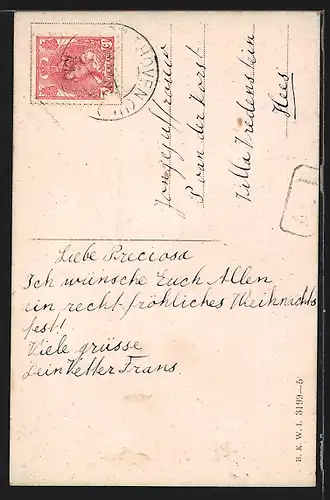 Liebe Preciosa
Ich wünsche Euch Allen
ein recht fröhliches Weihnachts
fest!
Viele grüsse
dein Vetter Frans.
Jongejuffrouw
P. van der Horst
Villa Vredenstein
Hees
B. K. W. I. 3199–5